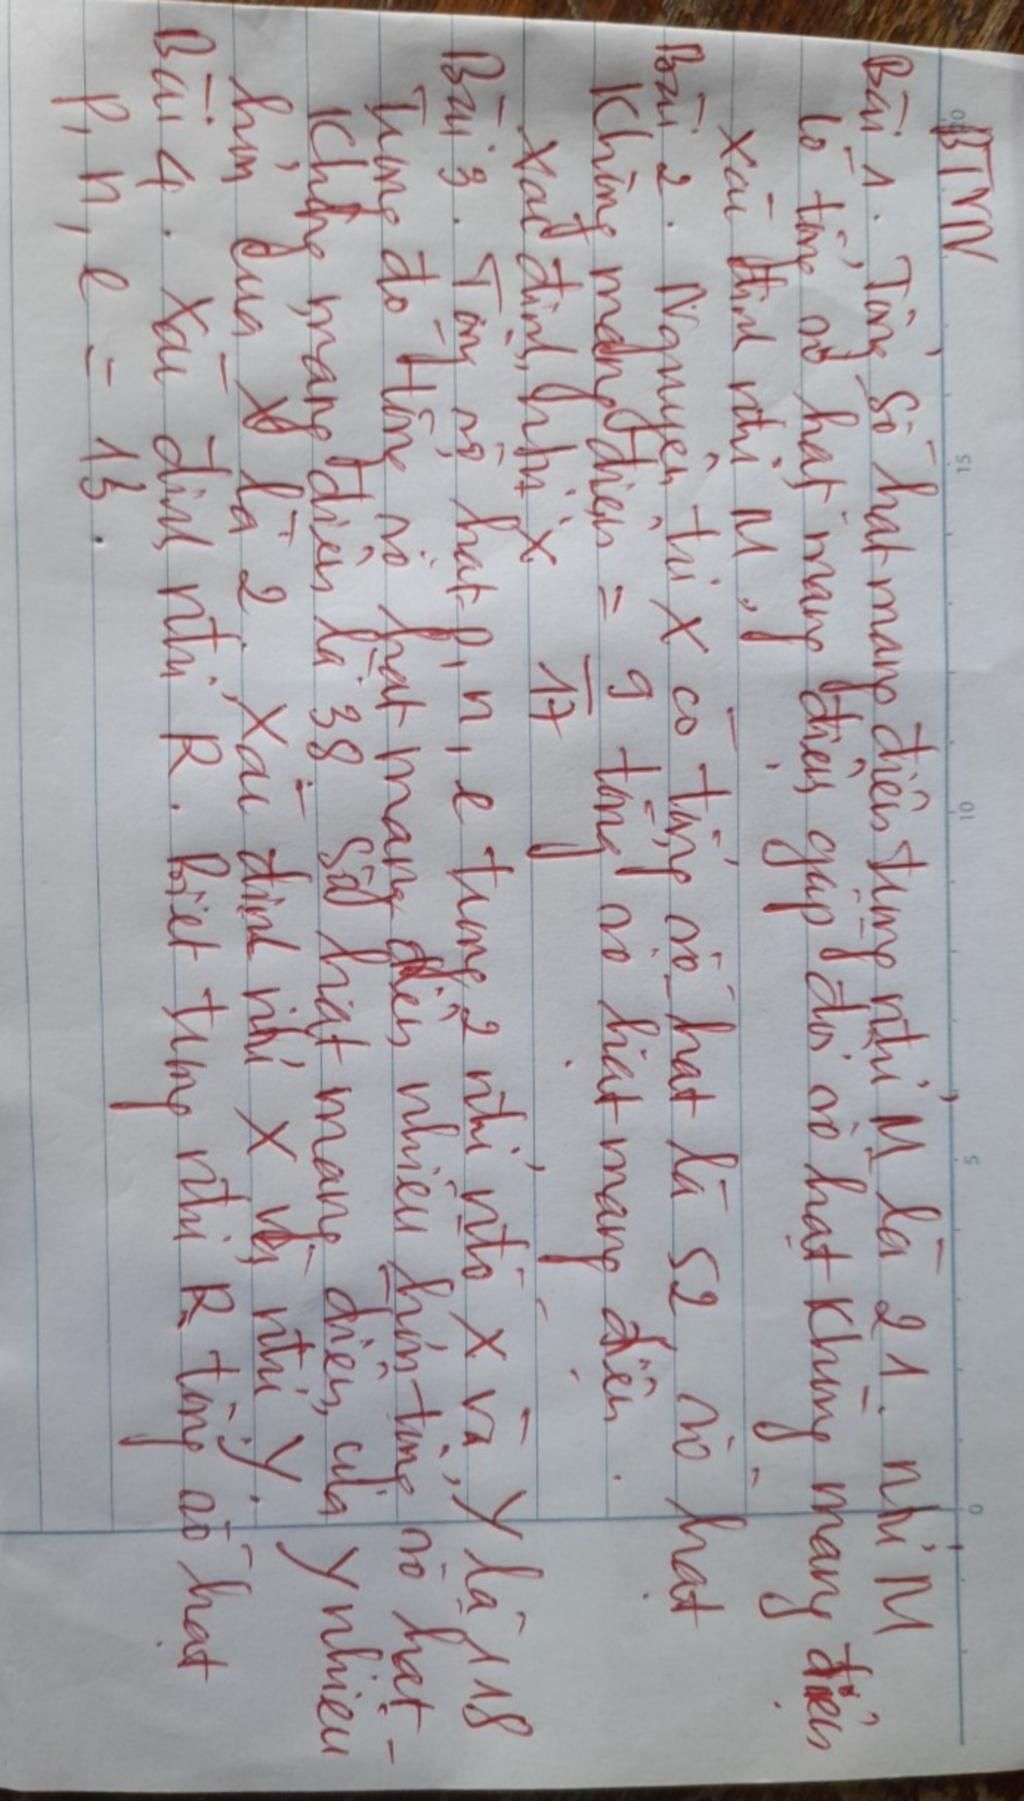 BTVN
Bài 1. Tổng số hạt mang điện trong ntử M là 21. ntử M
có tổng số hạt mang điện gấp đôi số hạt không mang điện
Xác định ntử M.
Bài 2. Nguyên tử X có tổng số hạt là 52, số hạt
không mang điện = 9/17 tổng số hạt mang điện.
Xác định ntử X
Bài 3. Tổng số hạt p, n, e trong 2 ntử ntố X và Y là 118
Trong đó tổng số hạt mang điện nhiều hơn tổng số hạt
không mang điện là 38 Số hạt mang điện của Y nhiều
hơn của X là 2. Xác định ntử X và ntử Y.
Bài 4. Xác định ntử R. biết trong ntử R tổng số hạt
p, n, e = 13.
0 5 10 15 20